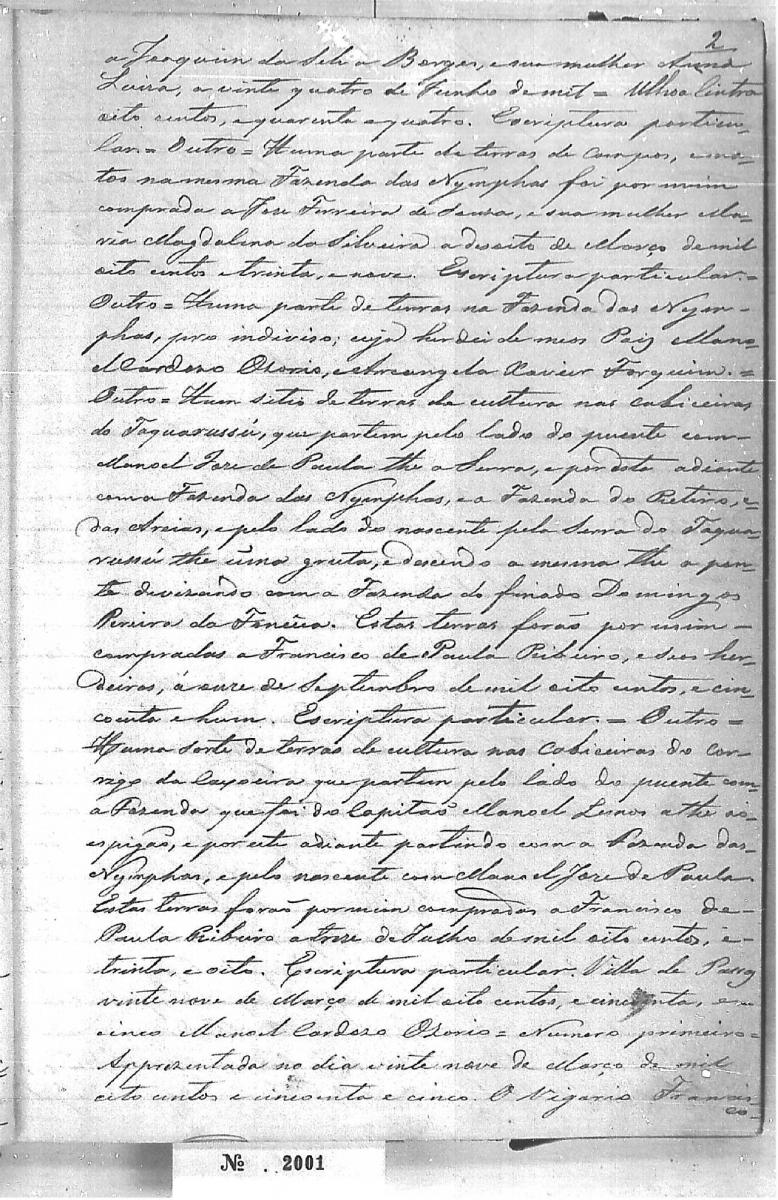 2
a Joaquim da Silva Borges, e sua mulher Anna
Luiza, a vinte quatro de Junho de mil = Ulhoa Cintra
oito centos, e quarenta e quatro. Escriptura particu-
lar. = Outro = Huma parte de terras de campos, e ma-
tos na mesma Fazenda das Nymphas foi por mim
comprada a Joze Ferreira de Souza, e sua mulher Ma-
ria Magdalena da Silveira a desoito de Março de mil
oito centos e trinta, e nove. Escriptura particular. =
Outro = Huma parte de terras na Fazenda das Nym-
phas, pro indiviso; cuja herdei de meos Paiz Mano-
el Cardozo Ozorio, e Archangela Xavier Forquim. =
Outro = Hum sitio de terras de cultura nas cabiceiras
do Taquarussú, que partem pelo lado do puente com
Manoel Joze de Paula the a Serra, e por esta adiante
com a Fazenda das Nymphas, e a Fazenda do Retiro, e
das Areias, e pelo lado do nascente pela Serra do Taqua-
russú the uma gruta, e descendo a mesma the a pon-
te divizando com a Fazenda do finado Domingos
Pereira da Fonceca. Estas terras forão por mim
compradas a Francisco de Paula Ribeiro, e seos her-
deiros, á onze de Septembro de mil oito centos, e cin-
coenta e hum. Escriptura particular. = Outro =
Huma sorte de terras de cultura nas Cabiceiras do Cor-
rego da Caxoeira que partem pelo lado do puente com
a Fazenda que foi do Capitão Manoel Lemos athe o
espigão, e por este adiante partindo com a Fazenda das
Nymphas, e pelo nascente com Manoel Joze de Paula.
Estas terras forão por mim compradas a Francisco de
Paula Ribeiro a treze de Julho de mil oito centos, e
trinta, e oito. Escriptura particular. Villa de Passos
vinte nove de Março de mil oito centos, e cincoenta, e
cinco Manoel Cardozo Ozorio = Numero primeiro =
Apprezentada no dia vinte nove de Março de mil
oito centos e cincoenta e cinco. O Vigario Francis-
co
No. 2001